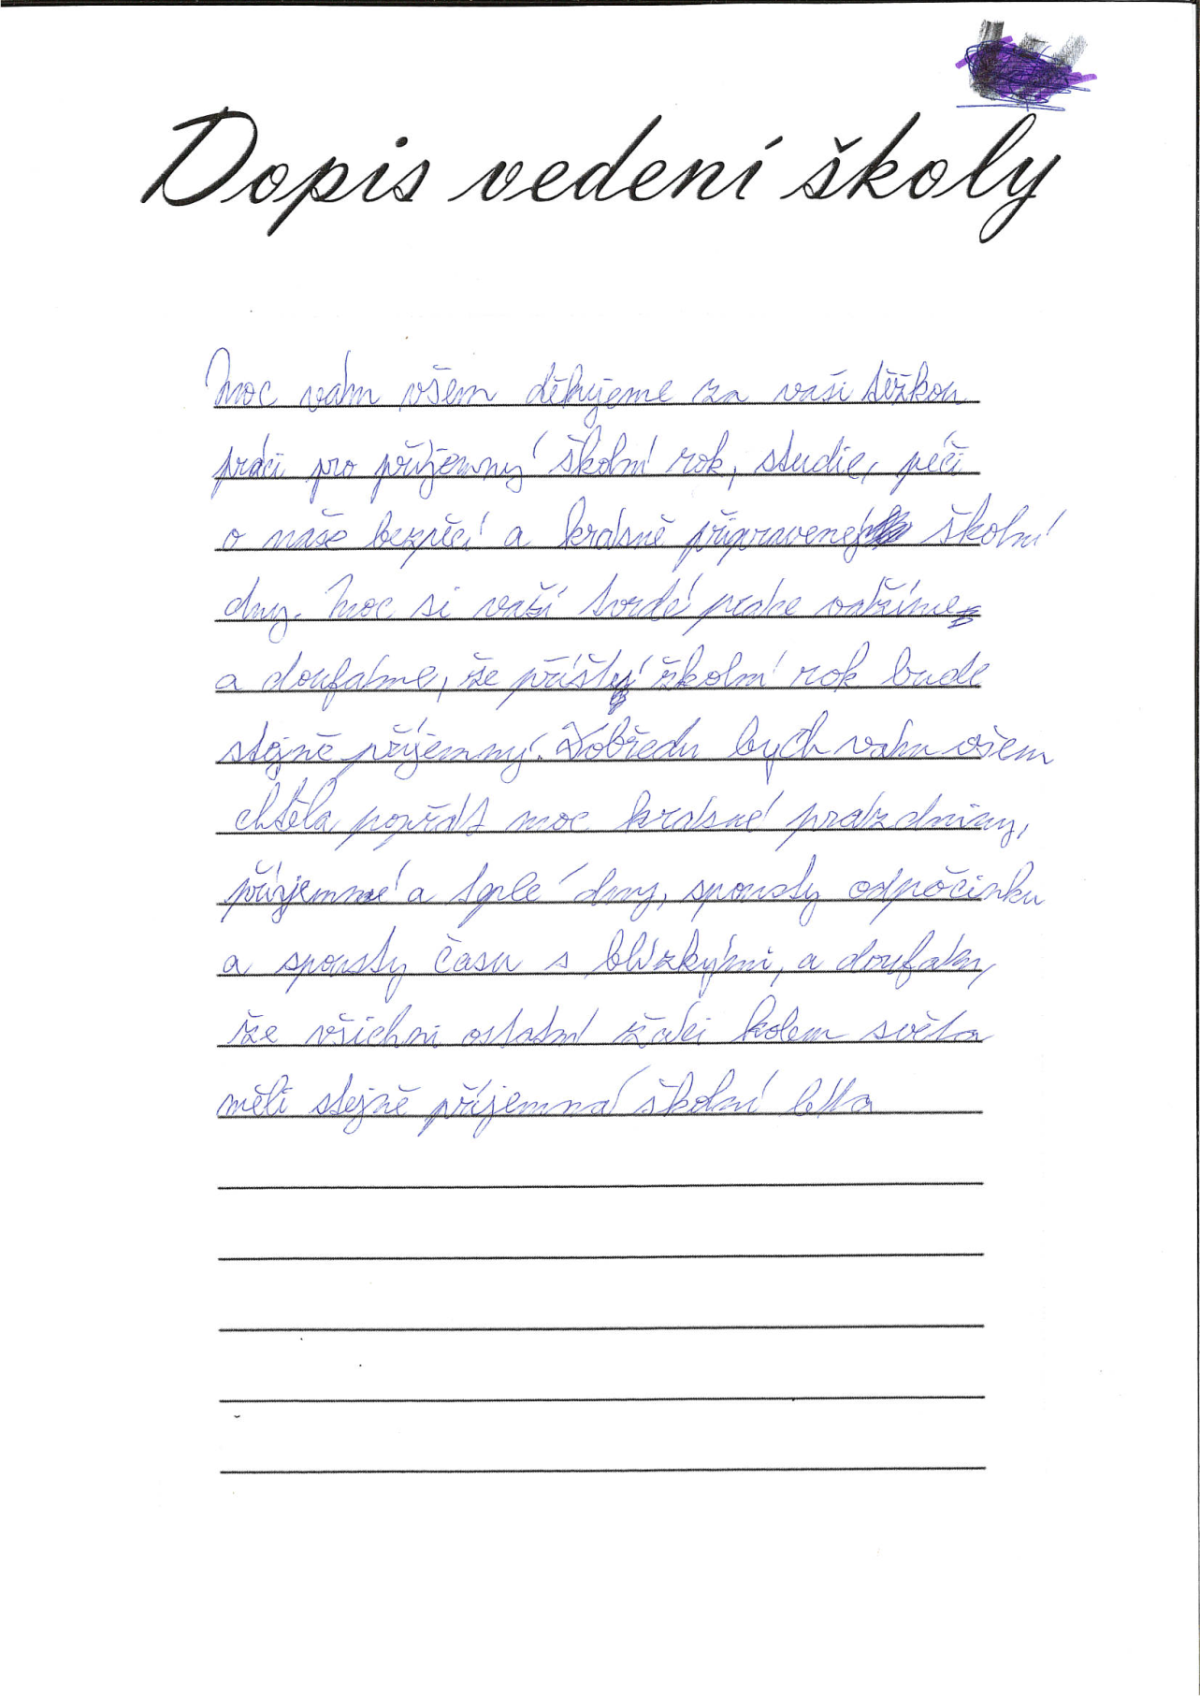 Dopis vedení školy
Moc vám všem děkujeme za vaši těžkou
práci pro příjemný školní rok, studie, péči
o naše bezpěčí a krásně připravené školní
dny. Moc si vaší tvrdé práce vážíme
a doufáme, že příští školní rok bude
stejně příjemný. Dobředu bych vám všem
chtěla popřát moc krásné prázdniny,
příjemné a teplé dny, spousty odpočinku
a spousty času s blízkými, a doufám,
že všichni ostatní žáci kolem světa
měli stejně příjemná školní léta